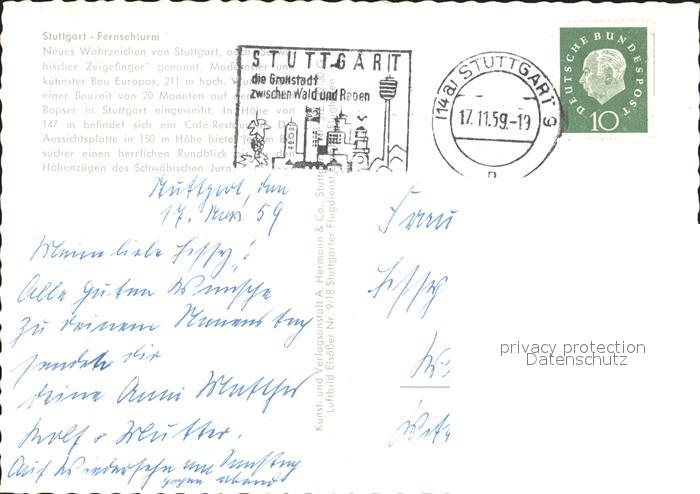 Stuttgart - Fernsehturm
Neues Wahrzeichen von Stuttgart, auch "Schwä-
bischer Zeigefinger" genannt. Modernster und
kühnster Bau Europas, 211 m hoch. Wurde in
einer Bauzeit von 20 Monaten auf dem
Bopser in Stuttgart eingeweiht. In Höhe von
147 m befindet sich ein Café-Restaurant.
Aussichtsplatte in 150 m Höhe bietet dem Be-
sucher einen herrlichen Rundblick
Höhenzügen des Schwäbischen Jura.
STUTTGART
die Großstadt
zwischen Wald und Reben
(14a) STUTTGART 9
17.11.59.-19
n
DEUTSCHE BUNDESPOST
10
Stuttgart, den
17. Nov. 59
Meine liebe Sissy!
Alle guten Wünsche
zu deinem Namenstag
sendet dir
deine Anni Matthes
Rolf + Mutter.
Auf Wiedersehn am Samstag
gegen abend
Kunst- und Verlagsanstalt A. Hermann & Co., Stuttgart
Luftbild Elsäßer Nr. 9/18 Stuttgarter Flugdienst
Frau
Sissy
privacy protection
Datenschutz